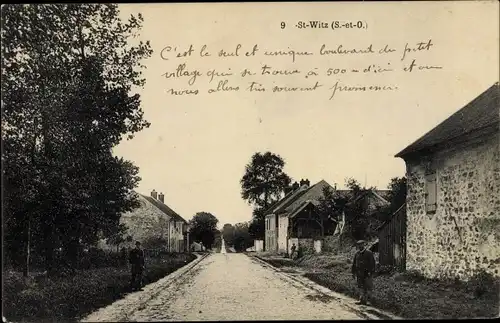 9 St-Witz (S.-et-O.)
C'est le seul et unique boulevard du petit
village qui se trouve à 500 m d'ici et ou
nous allons très souvent promener.